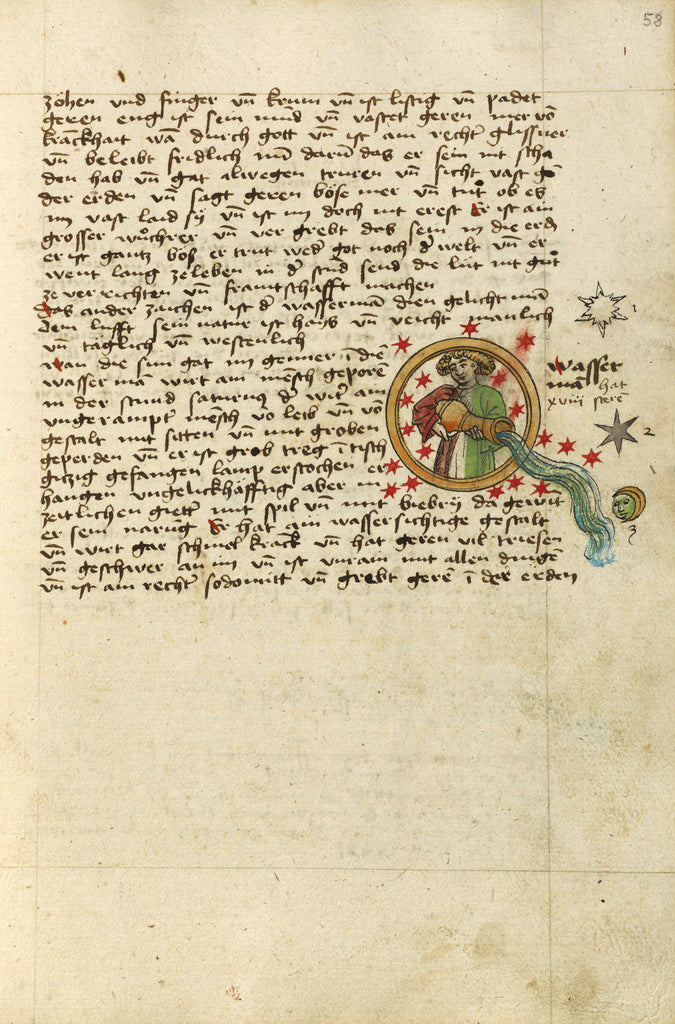 58
zöhen und finger vn̄ krum vn̄ ist listig vn̄ padet
geren eng ist sein mūd vn̄ vastet geren mer vō
kranckhait wān durch gott vn̄ ist ain rechter glissner
vn̄ beleibt fridlich nūn darū das er sein nit scha
den hab vn̄ gat alwegen truren vn̄ sicht vast gē
der erden vn̄ sagt geren böse mer vn̄ tut ob es
im vast laid sÿ vn̄ ist im doch nit erest Er ist ain
grosser wůchrer vn̄ ver grebt das sein in die erd
er ist gantz böß er trut wed̾ got noch d̾ welt vn̄ er
went lang zeleben in d̾ stūd send die lüt nit gůt
ze ver richten vn̄ fraintschafft machen
Das ander zaichen ist d̾ wasserman dem gelicht man
dem lufft sein natur ist haiß vn̄ veicht manlich
vn̄ täglich vn̄ westenlich
wan die sun gat im genner ī die
wasser man wirt ain mēsch geporē
in der stund saturnus d̾ wirt ain
ungerampt mēsch vō leib vn̄ vō
gestalt mit sitten vn̄ mit groben
geperden vn̄ er ist grob treg ī tisch
gitzig gefangen lamp erstochen er
hangen ungelückhäfftig aber in
zeitlichen giett mit spil vn̄ mit biebrÿ da gewint
er sein narung Er hat ain wassersichtige gestalt
vn̄ wirt gar schmel kranck vn̄ hat geren vil triesen
vn̄ geschwer an im vn̄ ist unrain mit allen dingē
vn̄ ist ain rechter sodomitt vn̄ grebt gerē ī der erden
1
wasser
man hat
xviii sterē
2
3